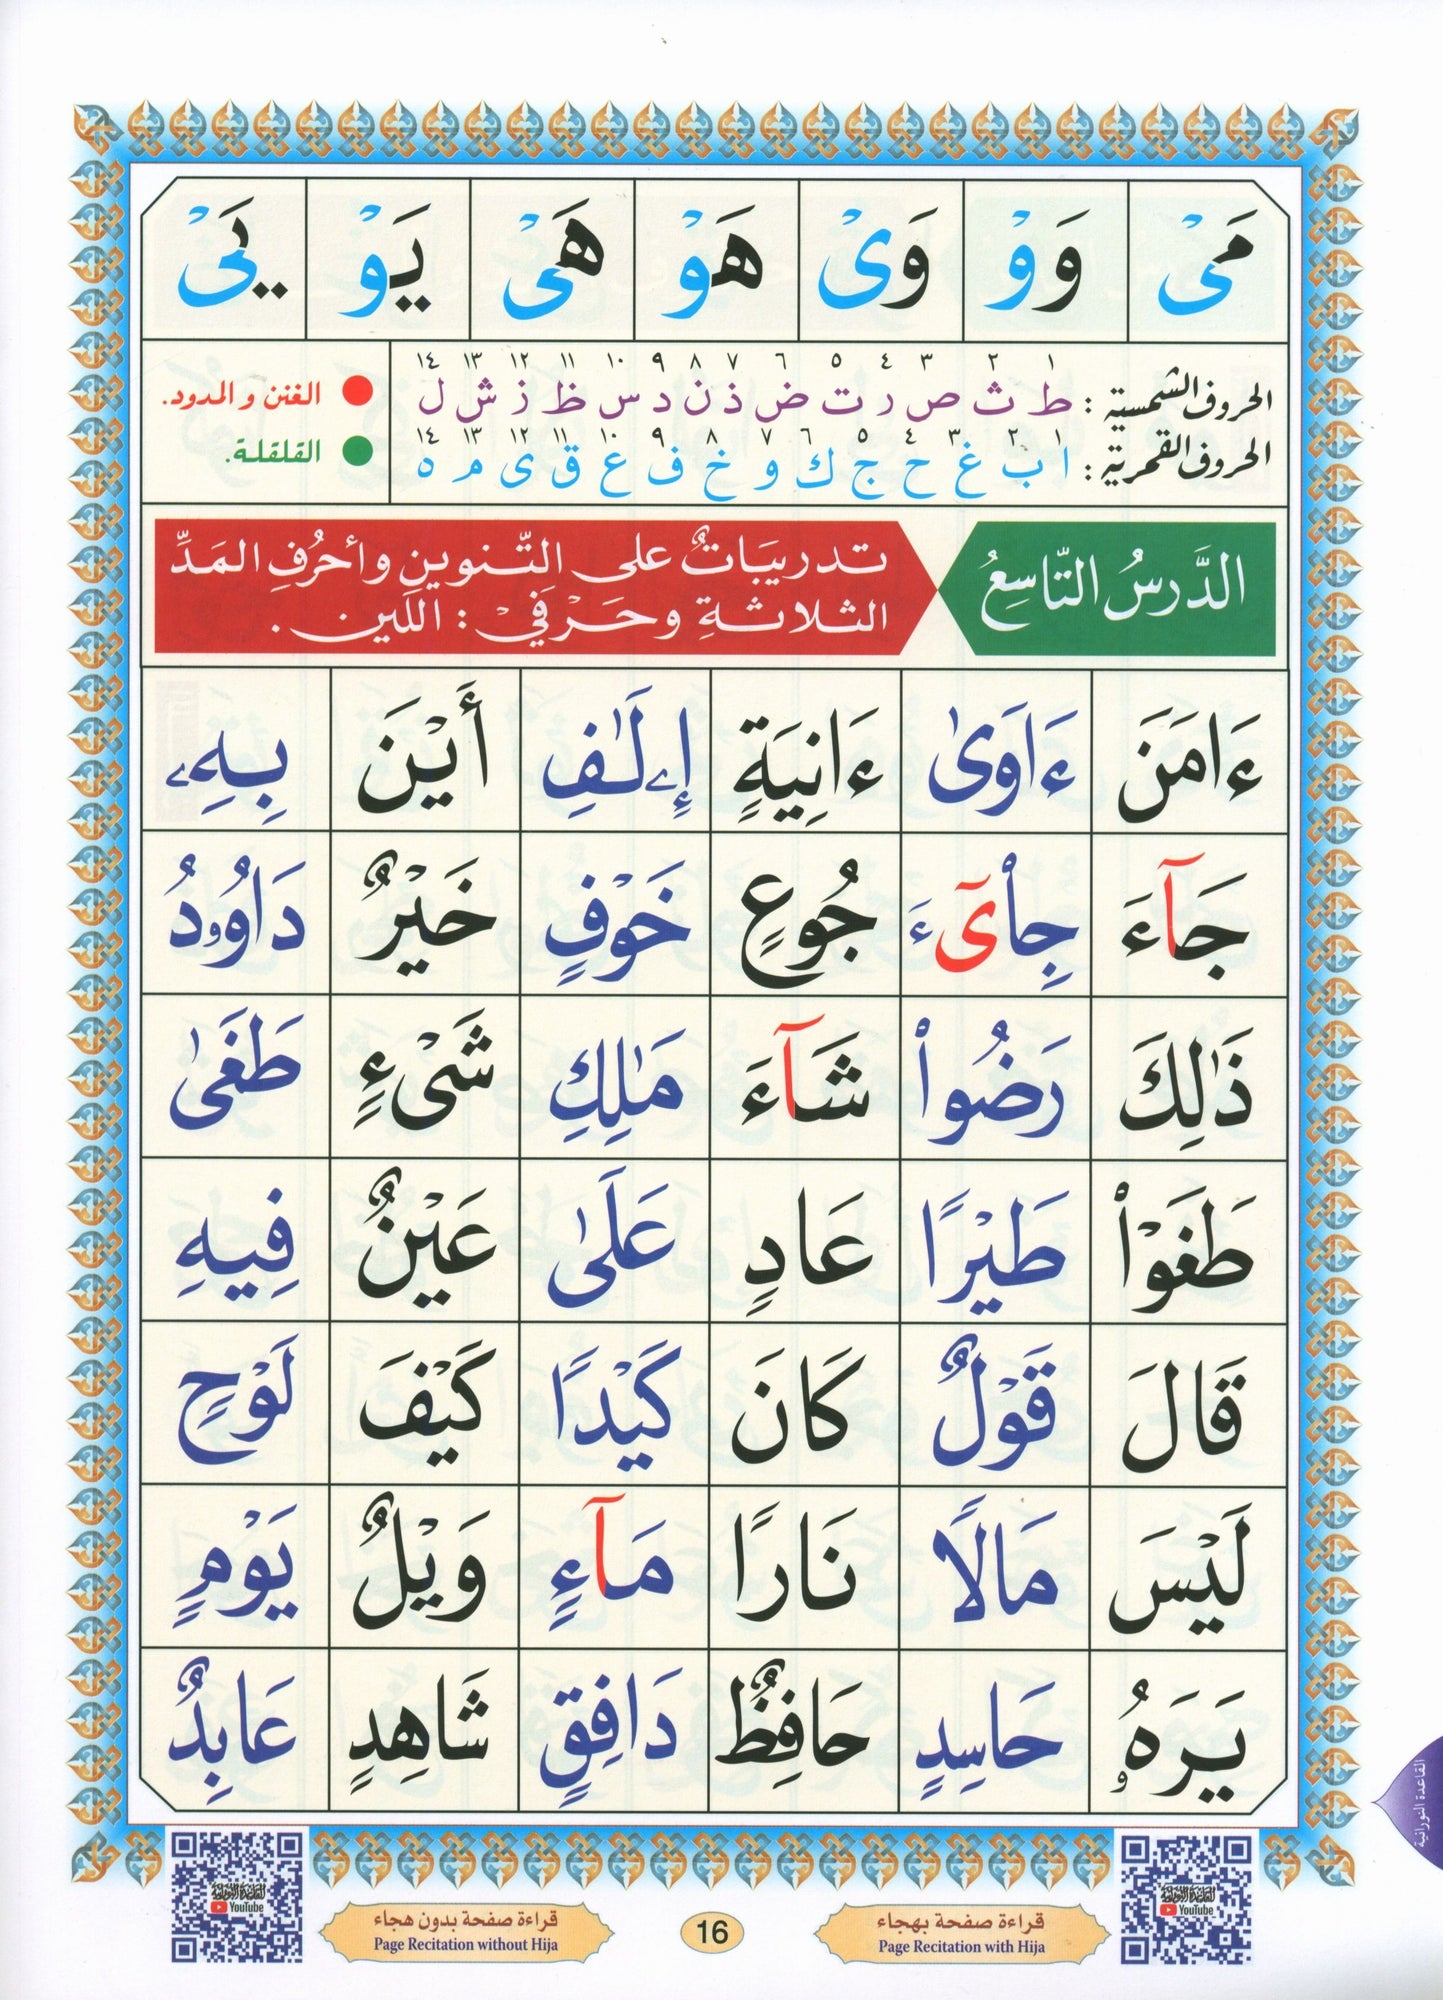 مَیْ وَوْ وَیْ هَوْ هَیْ يَوْ يَیْ
١ ٢ ٣ ٤ ٥ ٦ ٧ ٨ ٩ ١٠ ١١ ١٢ ١٣ ١٤
الحروف الشمسية : ط ث ص ر ت ض ذ ن د س ظ ز ش ل
الغنن و المدود.
١ ٢ ٣ ٤ ٥ ٦ ٧ ٨ ٩ ١٠ ١١ ١٢ ١٣ ١٤
الحروف القمرية : ا ب غ ح ج ك و خ ف ع ق ی م ه
القلقلة.
الدَّرسُ التَّاسِعُ
تدريبَاتٌ على التَّنوينِ وأحرُفِ المَدِّ
الثلاثةِ وحَرْفَيْ : اللِّين .
ءَامَنَ ءَاوَىٰ ءَانِيَةٍ إِۦلَـٰفِ أَيْنَ بِهِۦ
جَآءَ جِا۟ىٓءَ جُوعٍ خَوْفٍ خَيْرٌ دَاوُۥدُ
ذَٰلِكَ رَضُوا۟ شَآءَ مَـٰلِكِ شَیْءٍ طَغَىٰ
طَغَوْا۟ طَيْرًا عَادٍ عَلَىٰ عَيْنٌ فِيهِ
قَالَ قَوْلٌ كَانَ كَيْدًا كَيْفَ لَوْحٍ
لَيْسَ مَالًا نَارًا مَآءٍ وَيْلٌ يَوْمٍ
يَرَهُۥ حَاسِدٍ حَافِظٌ دَافِقٍ شَاهِدٍ عَابِدٌ
القاعدة النورانية
القاعدة النورانية
YouTube
قراءة صفحة بهجاء
Page Recitation with Hija
16
قراءة صفحة بدون هجاء
Page Recitation without Hija
القاعدة النورانية
YouTube